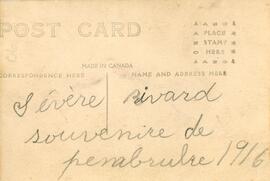 POST CARD
PLACE
STAMP
HERE
MADE IN CANADA
CORRESPONDENCE HERE
NAME AND ADDRESS HERE
Sévère Rivard
souvenire de
penabrulre 1916